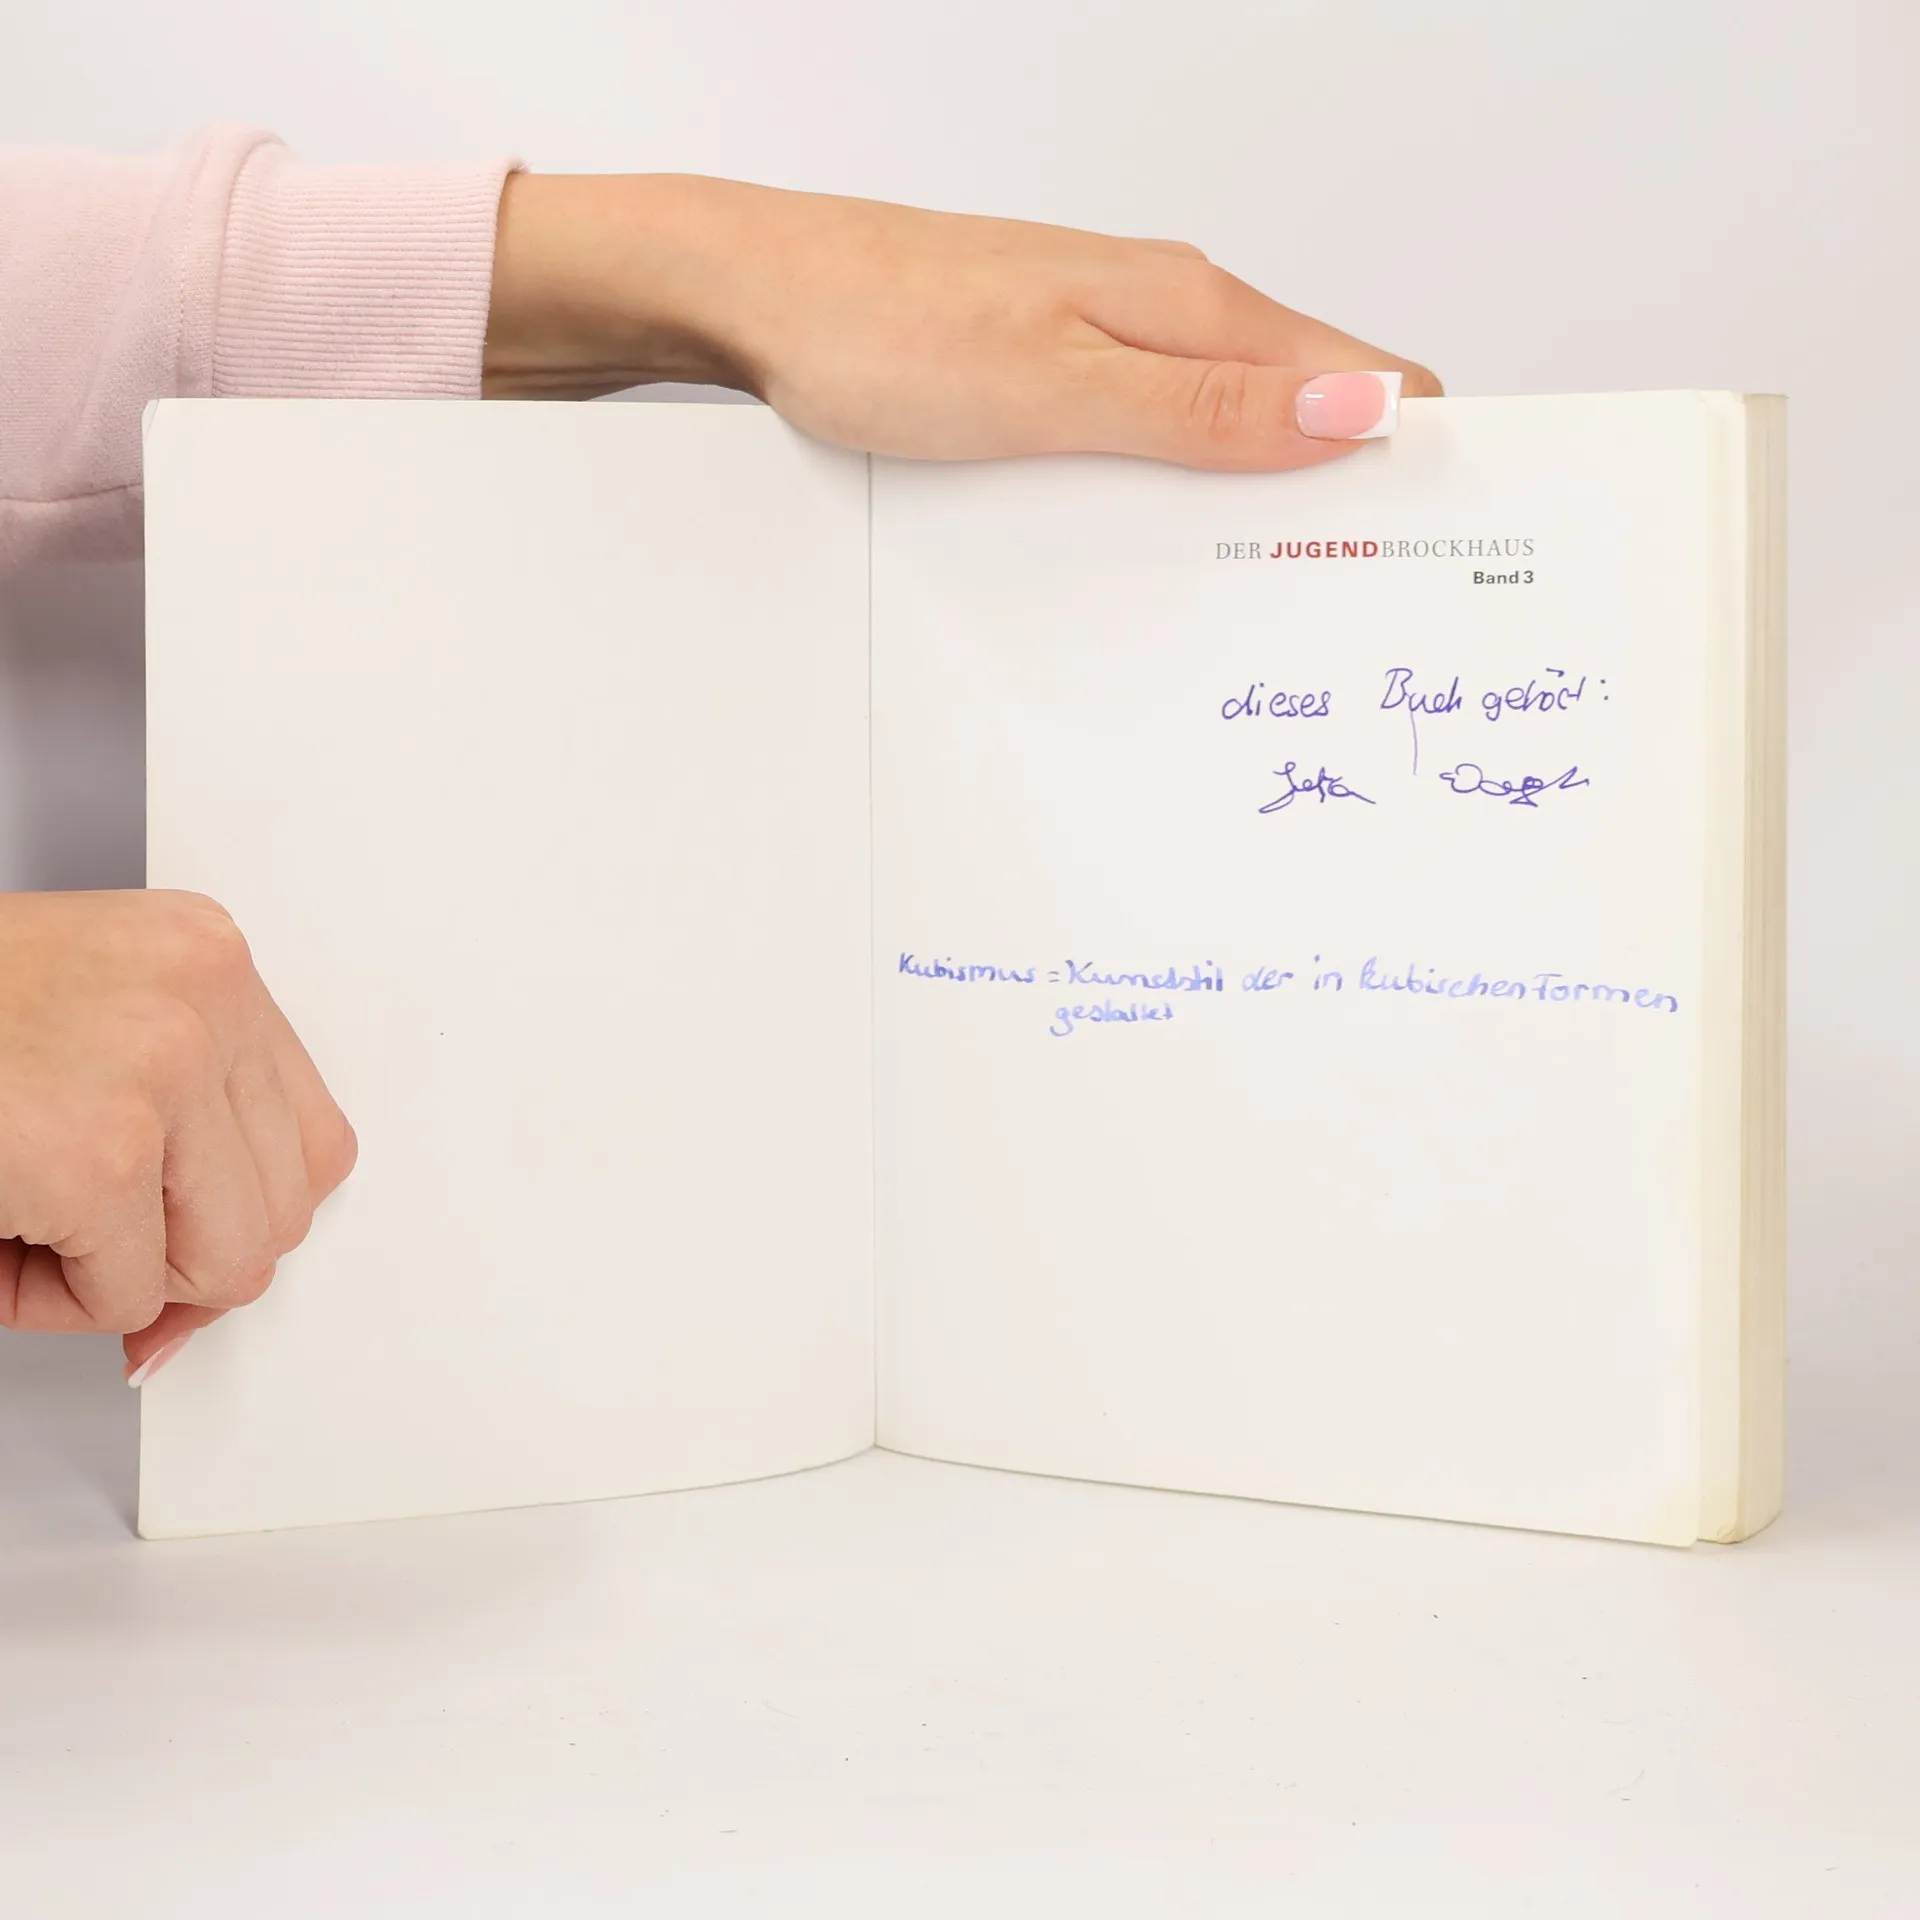 DER JUGENDBROCKHAUS
Band 3
dieses Buch gehört:
Kubismus = Kunststil der in kubischen Formen
gestaltet